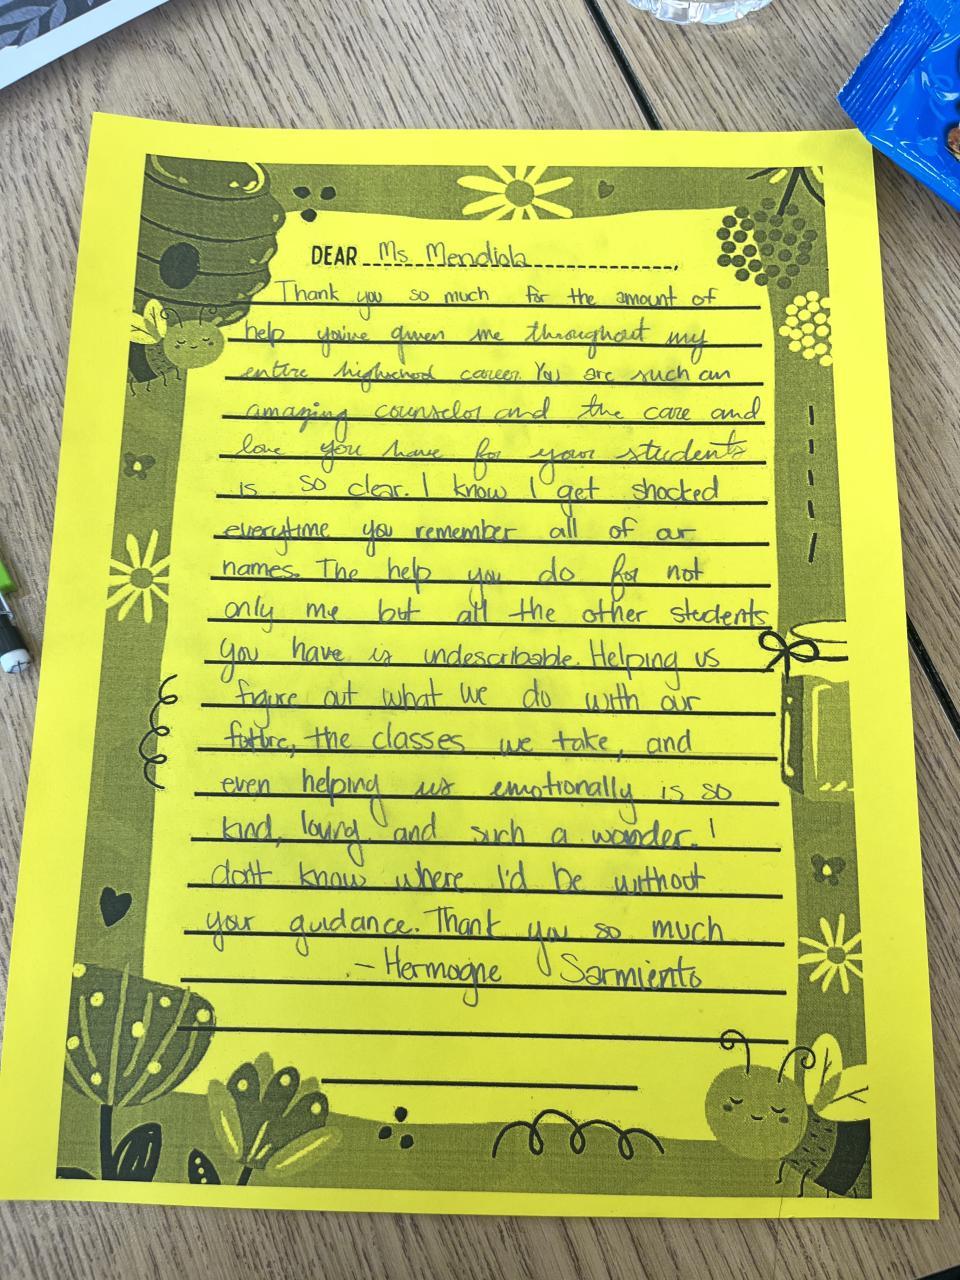 DEAR Ms Mendiola,
Thank you so much for the amount of
help you've given me throughout my
entire highschool career. You are such an
amazing counselor and the care and
love you have for your students
is so clear. I know I get shocked
everytime you remember all of our
names. The help you do for not
only me but all the other students
you have is undescribable. Helping us
figure out what we do with our
future, the classes we take, and
even helping us emotionally is so
kind, loving, and such a wonder. I
don't know where I'd be without
your guidance. Thank you so much
- Hermogne Sarmiento